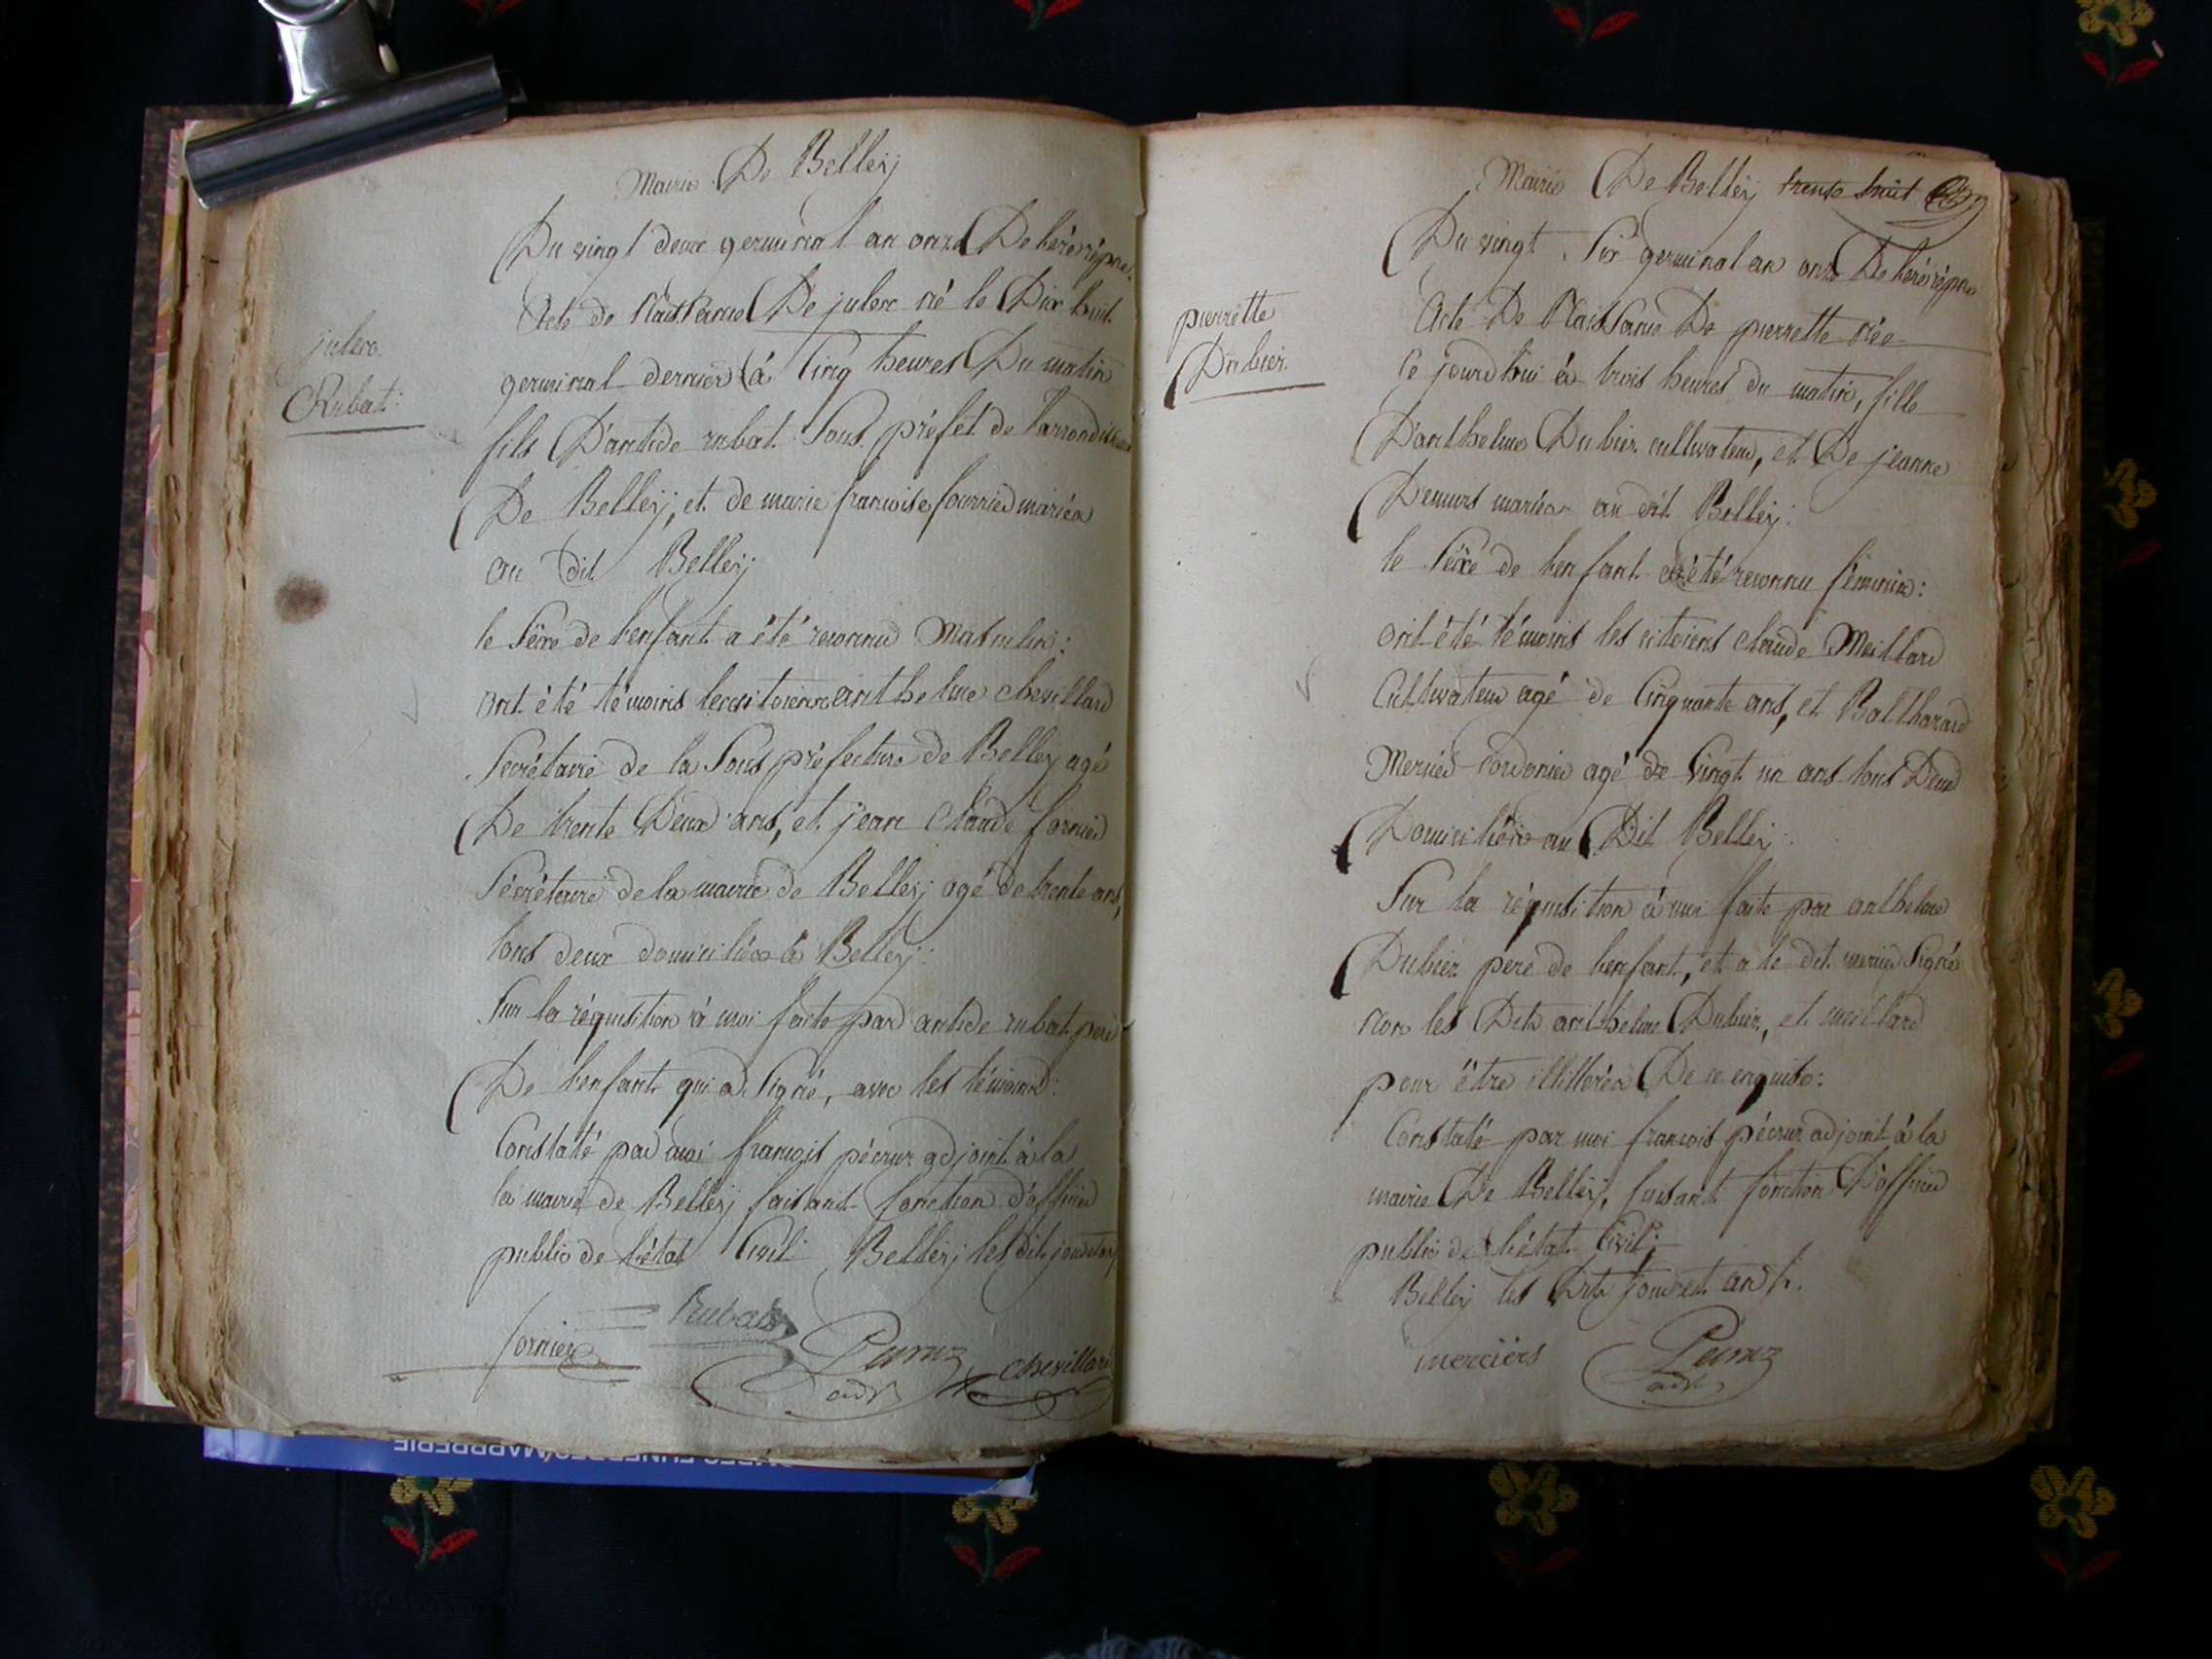 Mairie De Belleÿ
Du vingt deux germinal an onze De l'ère répne.
Acte de Naissance De jules né le Dix huit
jules
Rubat:
germinal dernier à Cinq heures Du matin
fils D'antide rubat Sous préfet de l'arrondissement
De Belleÿ, et de marie francoise fournier mariés
au dit Belleÿ
le Sëxe de l'enfant a été reconnu Masculin:
ont été témoins les citoiens anthelme chevillard
Secrétaire de la Sous préfecture de Belley agé
De trente Deux ans, et jean Claude fornier
Sécrétaire de la mairie de Belleÿ agé de trente ans,
tous deux domiciliés à Belleÿ:
Sur la réquisition à moi faite par antide rubat pere
De l'enfant qui a Signé, avec les témoins:
Constaté par moi francois pécruz adjoint à la
la mairie de Belleÿ faisant fonction d'officier
public de l'état Civil Belleÿ les dits jour et an
Rubat
fornier
Pecruz
adt
chevillard
Mairie De Belleÿ trente huit
Du vingt Six germinal an onze De l'ère répne
pierrette
Dubiez
Acte De Naissance De pierrette née
Ce jourd'hui à trois heures du matin, fille
D'anthelme Dubiez cultivateur, et De jeanne
Demurs mariés au dit Belleÿ:
le Sëxe de l'enfant a été reconnu féminin:
ont été témoins les citoiens claude Meillard
Cultivateur agé de Cinquante ans, et Balthazard
Mercier cordonier agé de Vingt un ans tous Deux
Domiciliés au Dit Belleÿ:
Sur la réquisition à moi faite par anthelme
Dubiez pere de l'enfant, et a le dit mercier Signé
Non les Dits anthelme Dubiez, et meillard
pour être illitterés De ce enquis:
Constaté par moi francois pécruz adjoint à la
mairie De Belleÿ, faisant fonction D'officier
public de l'état Civil:
Belleÿ les Dits jour et an
merciers
Pecruz
adt